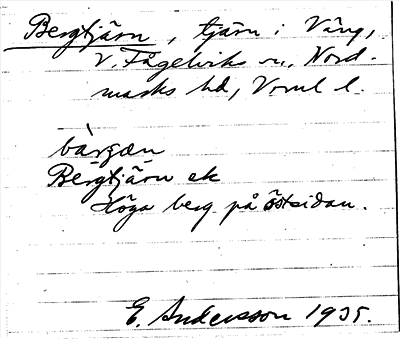 Bergtjärn, tjärn i Vång,
V. Fågelviks sn., Nord-
marks hd, Vrml l.
bàrgæn
Bergtjärn ek
Höga berg på östsidan.
E. Andersson 1935.